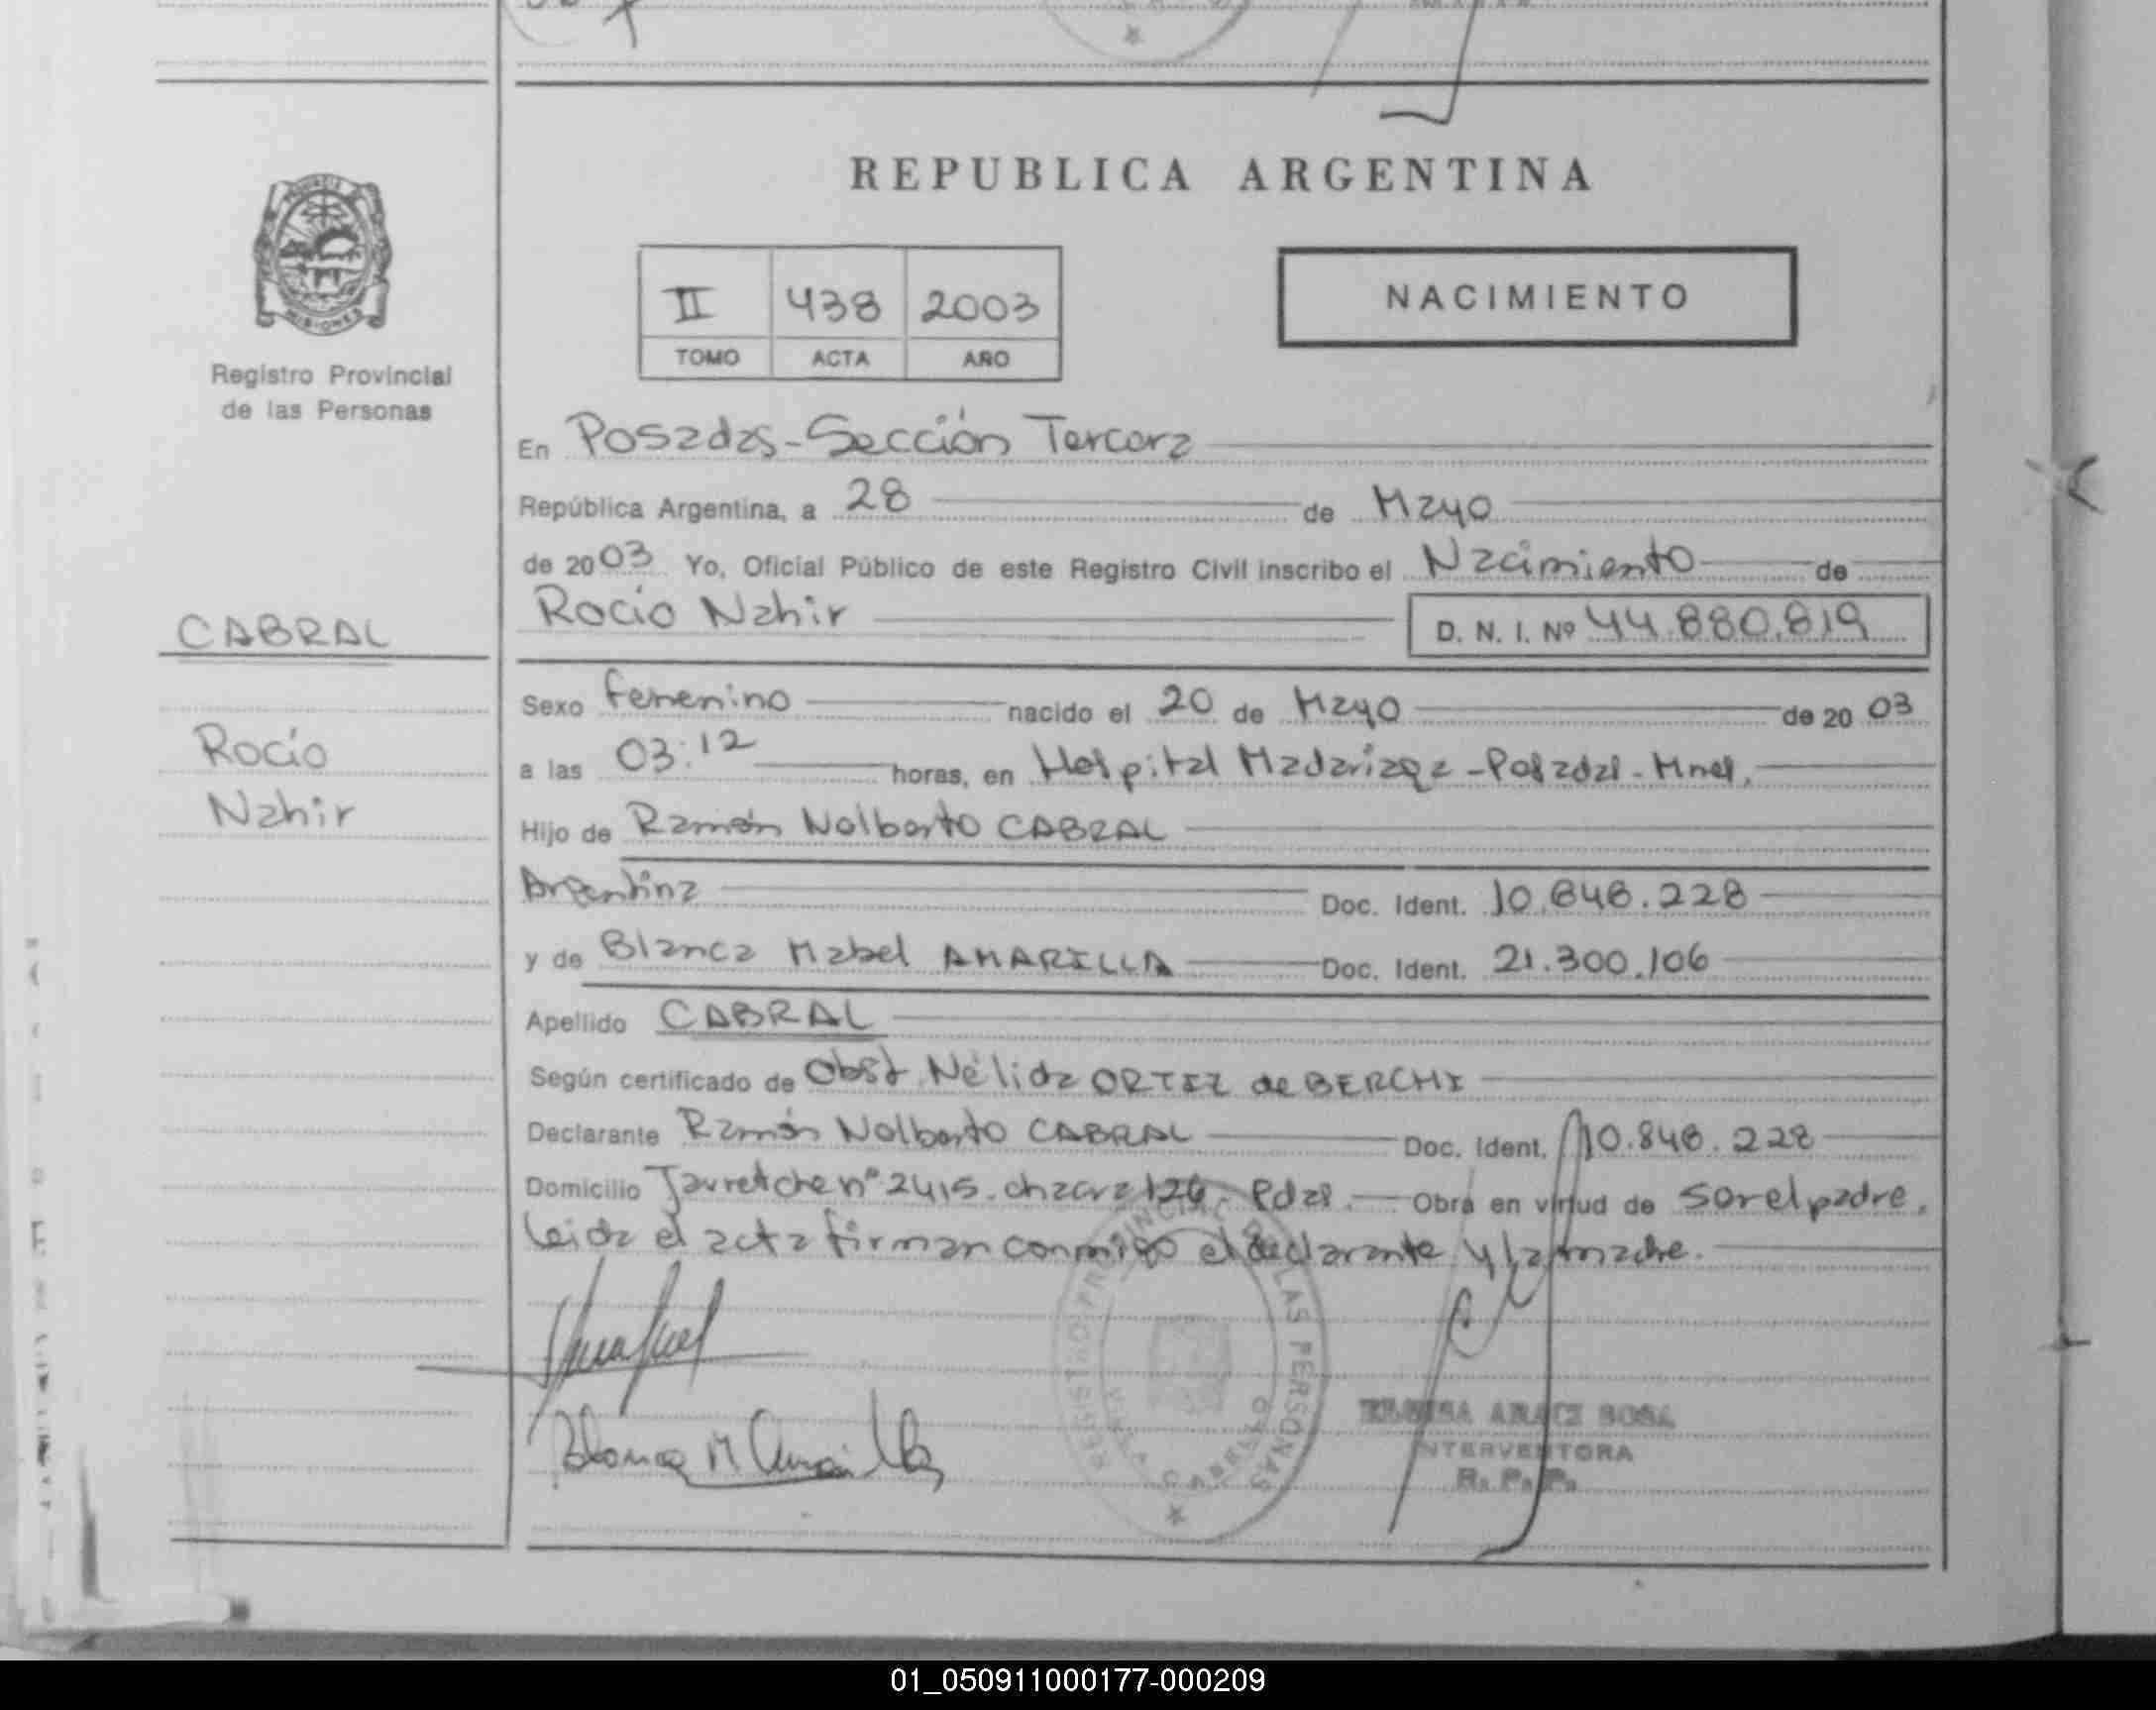 REPUBLICA ARGENTINA
PROVINCIA DE
MISIONES
Registro Provincial
de las Personas
II 438 2003
TOMO ACTA AÑO
NACIMIENTO
En Posadas-Sección Tercera
República Argentina, a 28 de Mayo
de 2003 Yo, Oficial Público de este Registro Civil inscribo el Nacimiento de
Rocío Nahir D. N. I. Nº 44.880.819
CABRAL
Rocío
Nahir
Sexo femenino nacido el 20 de Mayo de 2003
a las 03:12 horas, en Hospital Madariaga-Posadas-Mnes.
Hijo de Ramón Nolberto CABRAL
Argentina Doc. Ident. 10.848.228
y de Blanca Mabel AMARILLA Doc. Ident. 21.300.106
Apellido CABRAL
Según certificado de Obst. Nélida ORTIZ de BERCHI
Declarante Ramón Nolberto CABRAL Doc. Ident. 10.848.228
Domicilio Jauretche nº 2415. chacra 126. Pdas. Obra en virtud de ser el padre.
Leida el acta firman conmigo el declarante y la madre.
Blanca M Amarilla
REGISTRO PROVINCIAL DE LAS PERSONAS
ARACI SOSA
INTERVENTORA
R. P. P.
01_050911000177-000209